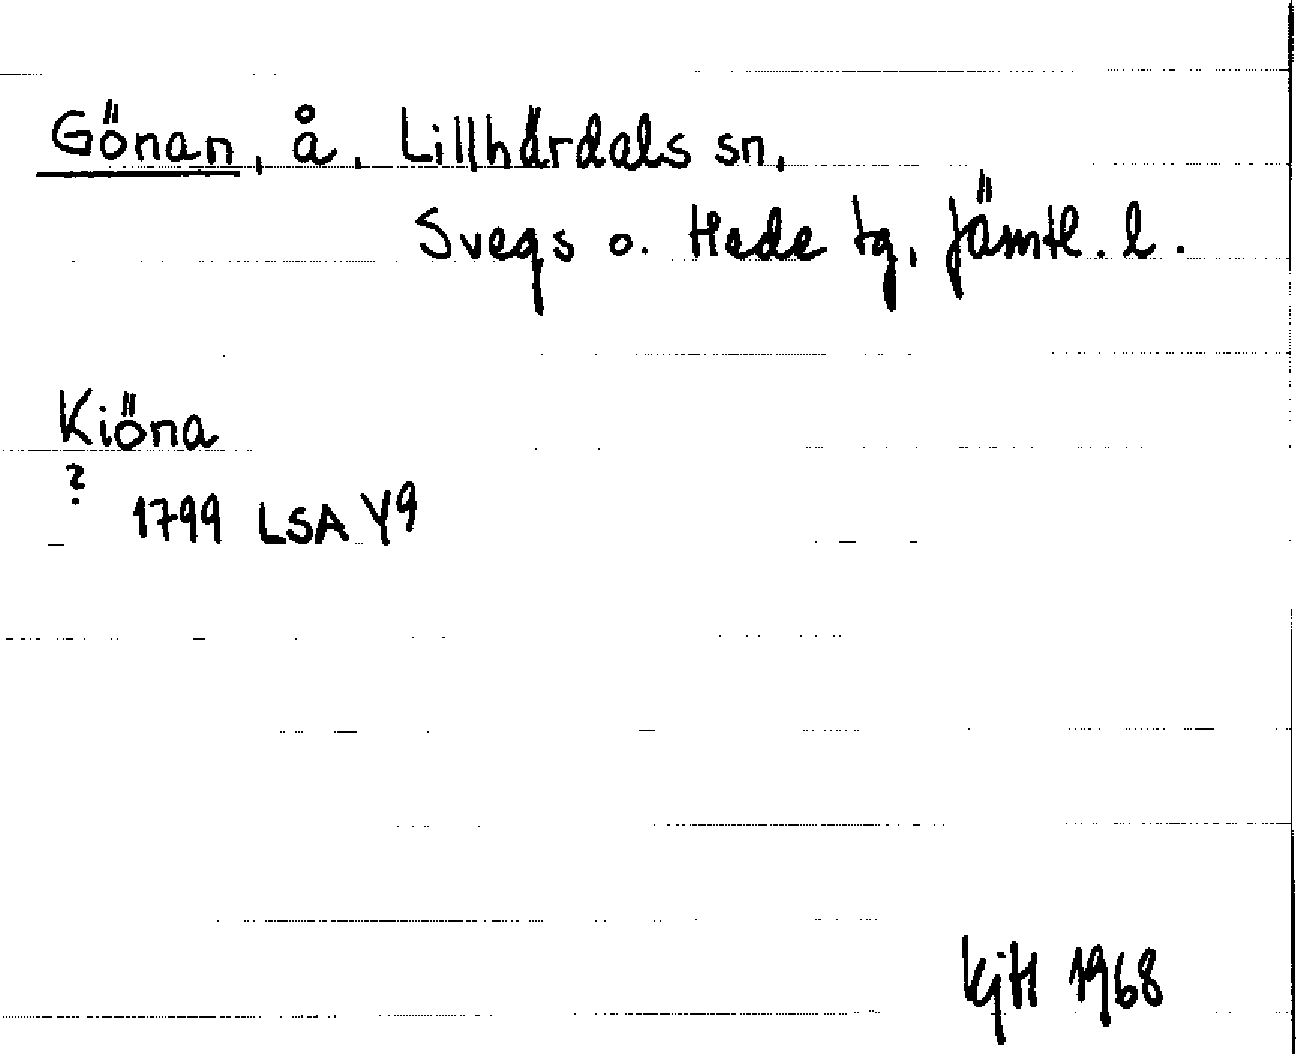 Gönan, å, Lillhärdals sn,
Svegs o. Hede tg, Jämtl. l.
Kiöna
?
1799 LSA Y9
KjH 1968